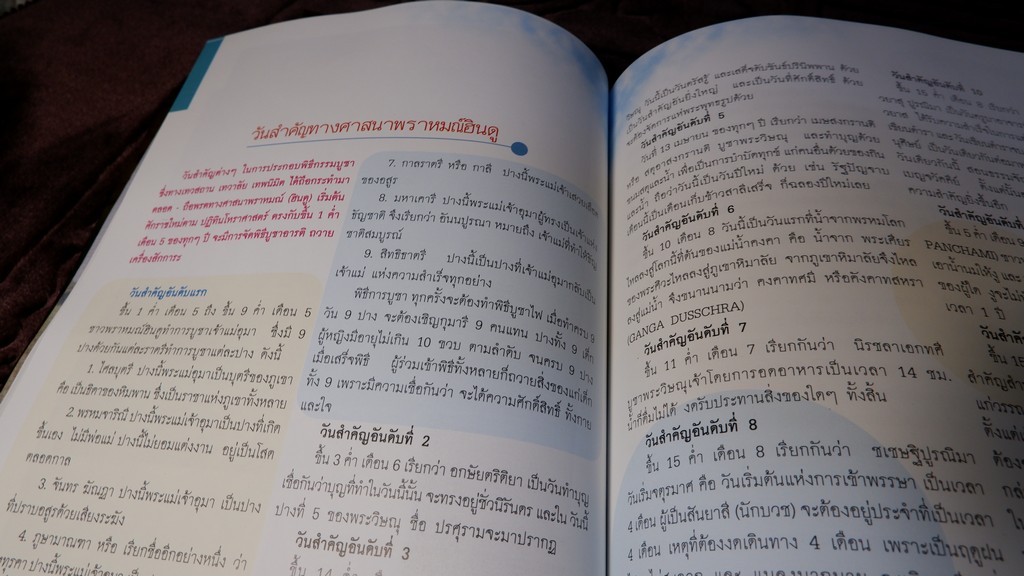 วันสำคัญทางศาสนาพราหมณ์ฮินดู
วันสำคัญต่างๆ ในการประกอบพิธีกรรมบูชา
ซึ่งทางเทวสถาน เทวาลัย เทพนิมิต ได้ถือกระทำมา
ตลอด - ถือพรตทางศาสนาพราหมณ์ (ฮินดู) เริ่มต้น
ศักราชใหม่ตาม ปฏิทินโหราศาสตร์ ตรงกับขึ้น 1 ค่ำ
เดือน 5 ของทุกๆ ปี จะมีการจัดพิธีบูชาอารติ ถวาย
เครื่องสักการะ
วันสำคัญอันดับแรก
ขึ้น 1 ค่ำ เดือน 5 ถึง ขึ้น 9 ค่ำ เดือน 5
ชาวพราหมณ์ฮินดูทำการบูชาเจ้าแม่อุมา ซึ่งมี 9
ปางด้วยกันแต่ละราตรีทำการบูชาแต่ละปาง ดังนี้
1. ไศลบุตรี ปางนี้พระแม่เจ้าอุมาเป็นบุตรีของภูเขา
คือ เป็นธิดาของหิมพาน ซึ่งเป็นราชาแห่งภูเขาทั้งหลาย
2. พรหมจาริณี ปางนี้พระแม่เจ้าอุมาเป็นปางที่เกิด
ขึ้นเอง ไม่มีพ่อแม่ ปางนี้ไม่ยอมแต่งงาน อยู่เป็นโสด
ตลอดกาล
3. จันทร ฆัณฎา ปางนี้พระแม่เจ้าอุมา เป็นปาง
ที่ปราบอสูรด้วยเสียงระฆัง
4. กูษามาณฑา หรือ เรียกชื่ออีกอย่างหนึ่ง ว่า
ปางนี้พระแม่เจ้าอุมาเป็น
7. กาลราตรี หรือ กาลี ปางนี้พระแม่เจ้าอุมา
ของอสูร
8. มหาเการี ปางนี้พระแม่เจ้าอุมาผู้ทรงเป็นเจ้าแห่ง
ธัญชาติ จึงเรียกว่า อันนปูรณา หมายถึง เจ้าแม่ที่ทำให้ธัญ
ชาติสมบูรณ์
9. สิทธิธาตรี ปางนี้เป็นปางที่เจ้าแม่อุมากลับเป็น
เจ้าแม่ แห่งความสำเร็จทุกอย่าง
พิธีการบูชา ทุกครั้งจะต้องทำพิธีบูชาไฟ เมื่อทำครบ 9
วัน 9 ปาง จะต้องเชิญกุมารี 9 คนแทน ปางทั้ง 9 เด็ก
ผู้หญิงมีอายุไม่เกิน 10 ขวบ ตามลำดับ จนครบ 9 ปาง
เมื่อเสร็จพิธี ผู้ร่วมเข้าพิธีทั้งหลายก็ถวายสิ่งของแก่เด็ก
ทั้ง 9 เพราะมีความเชื่อกันว่า จะได้ความศักดิ์สิทธิ์ ทั้งกาย
และใจ
วันสำคัญอันดับที่ 2
ขึ้น 3 ค่ำ เดือน 6 เรียกว่า อกษัยตริติยา เป็นวันทำบุญ
เชื่อกันว่าบุญที่ทำในวันนี้นั้น จะทรงอยู่ชั่วนิรันดร และใน วันนี้
ปางที่ 5 ของพระวิษณุ ชื่อ ปรศุรามจะมาปรากฏ
วันสำคัญอันดับที่ 3
ขึ้น 14
วันนี้เป็นวันตรัสรู้ และเสด็จดับขันธ์ปรินิพพาน ด้วย
เป็นวันสำคัญอันยิ่งใหญ่ และเป็นวันที่ศักดิ์สิทธิ์ ด้วย
จะต้องจัดการแห่พระพุทธรูปด้วย
วันสำคัญอันดับที่ 5
วันที่ 13 เมษายน ของทุกๆ ปี เรียกว่า เมษสงกรานติ
หรือ สตุอาสงกรานติ บูชาพระวิษณุ และทำบุญด้วย
ขนมสตุและน้ำ เพื่อเป็นการบำบัดทุกข์ แก่คนอื่นด้วยของกิน
และน้ำ ถือว่าวันนี้เป็นวันปีใหม่ ด้วย เช่น รัฐปัญจาบ
เดือนนี้เป็นเดือนเก็บข้าวสาลีเสร็จ ก็ฉลองปีใหม่เลย
วันสำคัญอันดับที่ 6
ขึ้น 10 เดือน 8 วันนี้เป็นวันแรกที่น้ำจากพรหมโลก
ไหลลงสู่โลกนี้ที่ต้นของแม่น้ำคงคา คือ น้ำจาก พระเศียร
ของพระศิวะไหลลงสู่ภูเขาหิมาลัย จากภูเขาหิมาลัยจึงไหล
ลงสู่แม่น้ำ จึงขนานนามว่า คงคาทศมี หรือคังคาทสหรา
(GANGA DUSSCHRA)
วันสำคัญอันดับที่ 7
ขึ้น 11 ค่ำ เดือน 7 เรียกกันว่า นิรชลาเอกาทศี
บูชาพระวิษณุเจ้าโดยการอดอาหารเป็นเวลา 14 ชม.
น้ำก็ดื่มไม่ได้ งดรับประทานสิ่งของใดๆ ทั้งสิ้น
วันสำคัญอันดับที่ 8
ขึ้น 15 ค่ำ เดือน 8 เรียกกันว่า ชเยษฐิปูรณิมา
วันเริ่มจตุรมาศ คือ วันเริ่มต้นแห่งการเข้าพรรษา เป็นเวลา
4 เดือน ผู้เป็นสันยาสี (นักบวช) จะต้องอยู่ประจำที่เป็นเวลา
4 เดือน เหตุที่ต้องงดเดินทาง 4 เดือน เพราะเป็นฤดูฝน
วันสำคัญอันดับที่ 10
ขึ้น 15 ค่ำ เดือน 8 เรียกว่า
วันสำคัญอันดับที่
ขึ้น 5 ค่ำ เดือน
PANCHAMI ชาว
เอาน้ำนมให้งู และ
ของผู้ใด งูจะไม่
เวลา 1 ปี
วันสำคัญ
ขึ้น 15